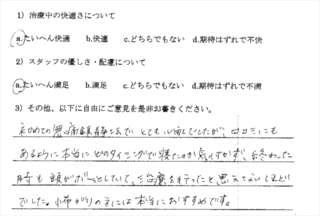 1）治療中の快適さについて
a.たいへん快適 b.快適 c.どちらでもない d.期待はずれで不快
2）スタッフの優しさ・配慮について
a.たいへん満足 b.満足 c.どちらでもない d.期待はずれで不満
3）その他、以下に自由にご意見を是非お書きください。
初めての静脈鎮静だったので とても心配でしたが、口コミにも
あるように本当にどのタイミングで寝たのか気付かず、終わった
時も頭がボーっとしていて、治療を行ったと思えないほど
でした。小怖がりの方には本当におすすめです。